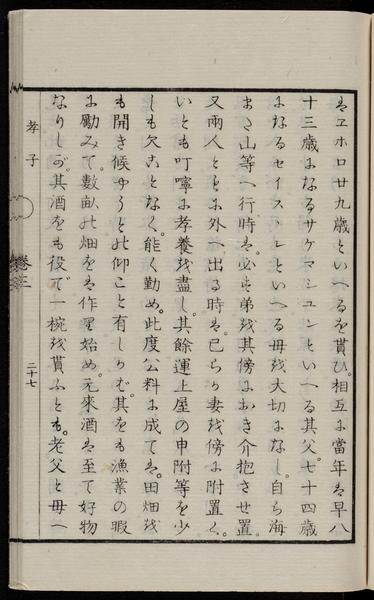 はヱホロ廿九歳といへるを貰ひ。相互に當年は早八
十三歳になるサケマシユンといへる其父。七十四歳
になるセイスハレといへる母を大切になし。自ら海
まさ山等へ行時は。必ず弟を其傍におき介抱させ置。
又兩人ともに外へ出る時は。己らが妻を傍に附置く。
いとも叮嚀に孝養を盡し。其餘運上屋の申附等を少
しも欠ことなく。能く勤め。此度公料に成ては。田畑を
も開き候やうとの仰こと有しかば。其をも漁業の暇
に勵みて。數畝の畑をも作り始め。元來酒は至て好物
なりしが。其酒をも役で一椀を貰ふとも。老父と母へ
孝子
卷三
二十七